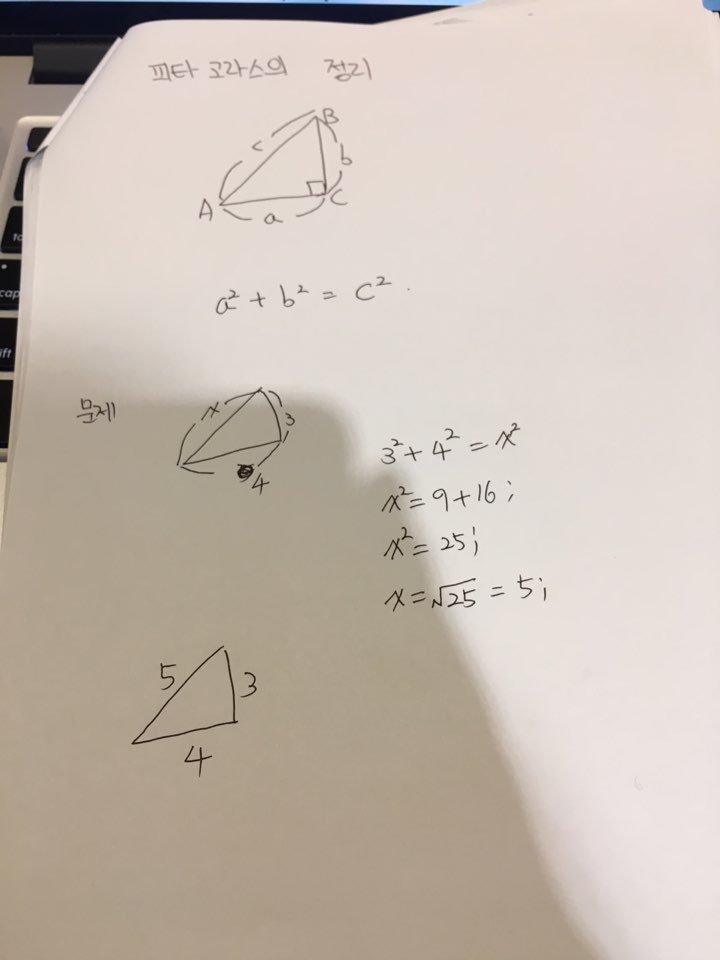 피타고라스의 정리
B
c
b
A
a
C
a² + b² = c²
문제
x
3
4
3² + 4² = x²
x² = 9 + 16;
x² = 25;
x = √25 = 5;
5
3
4